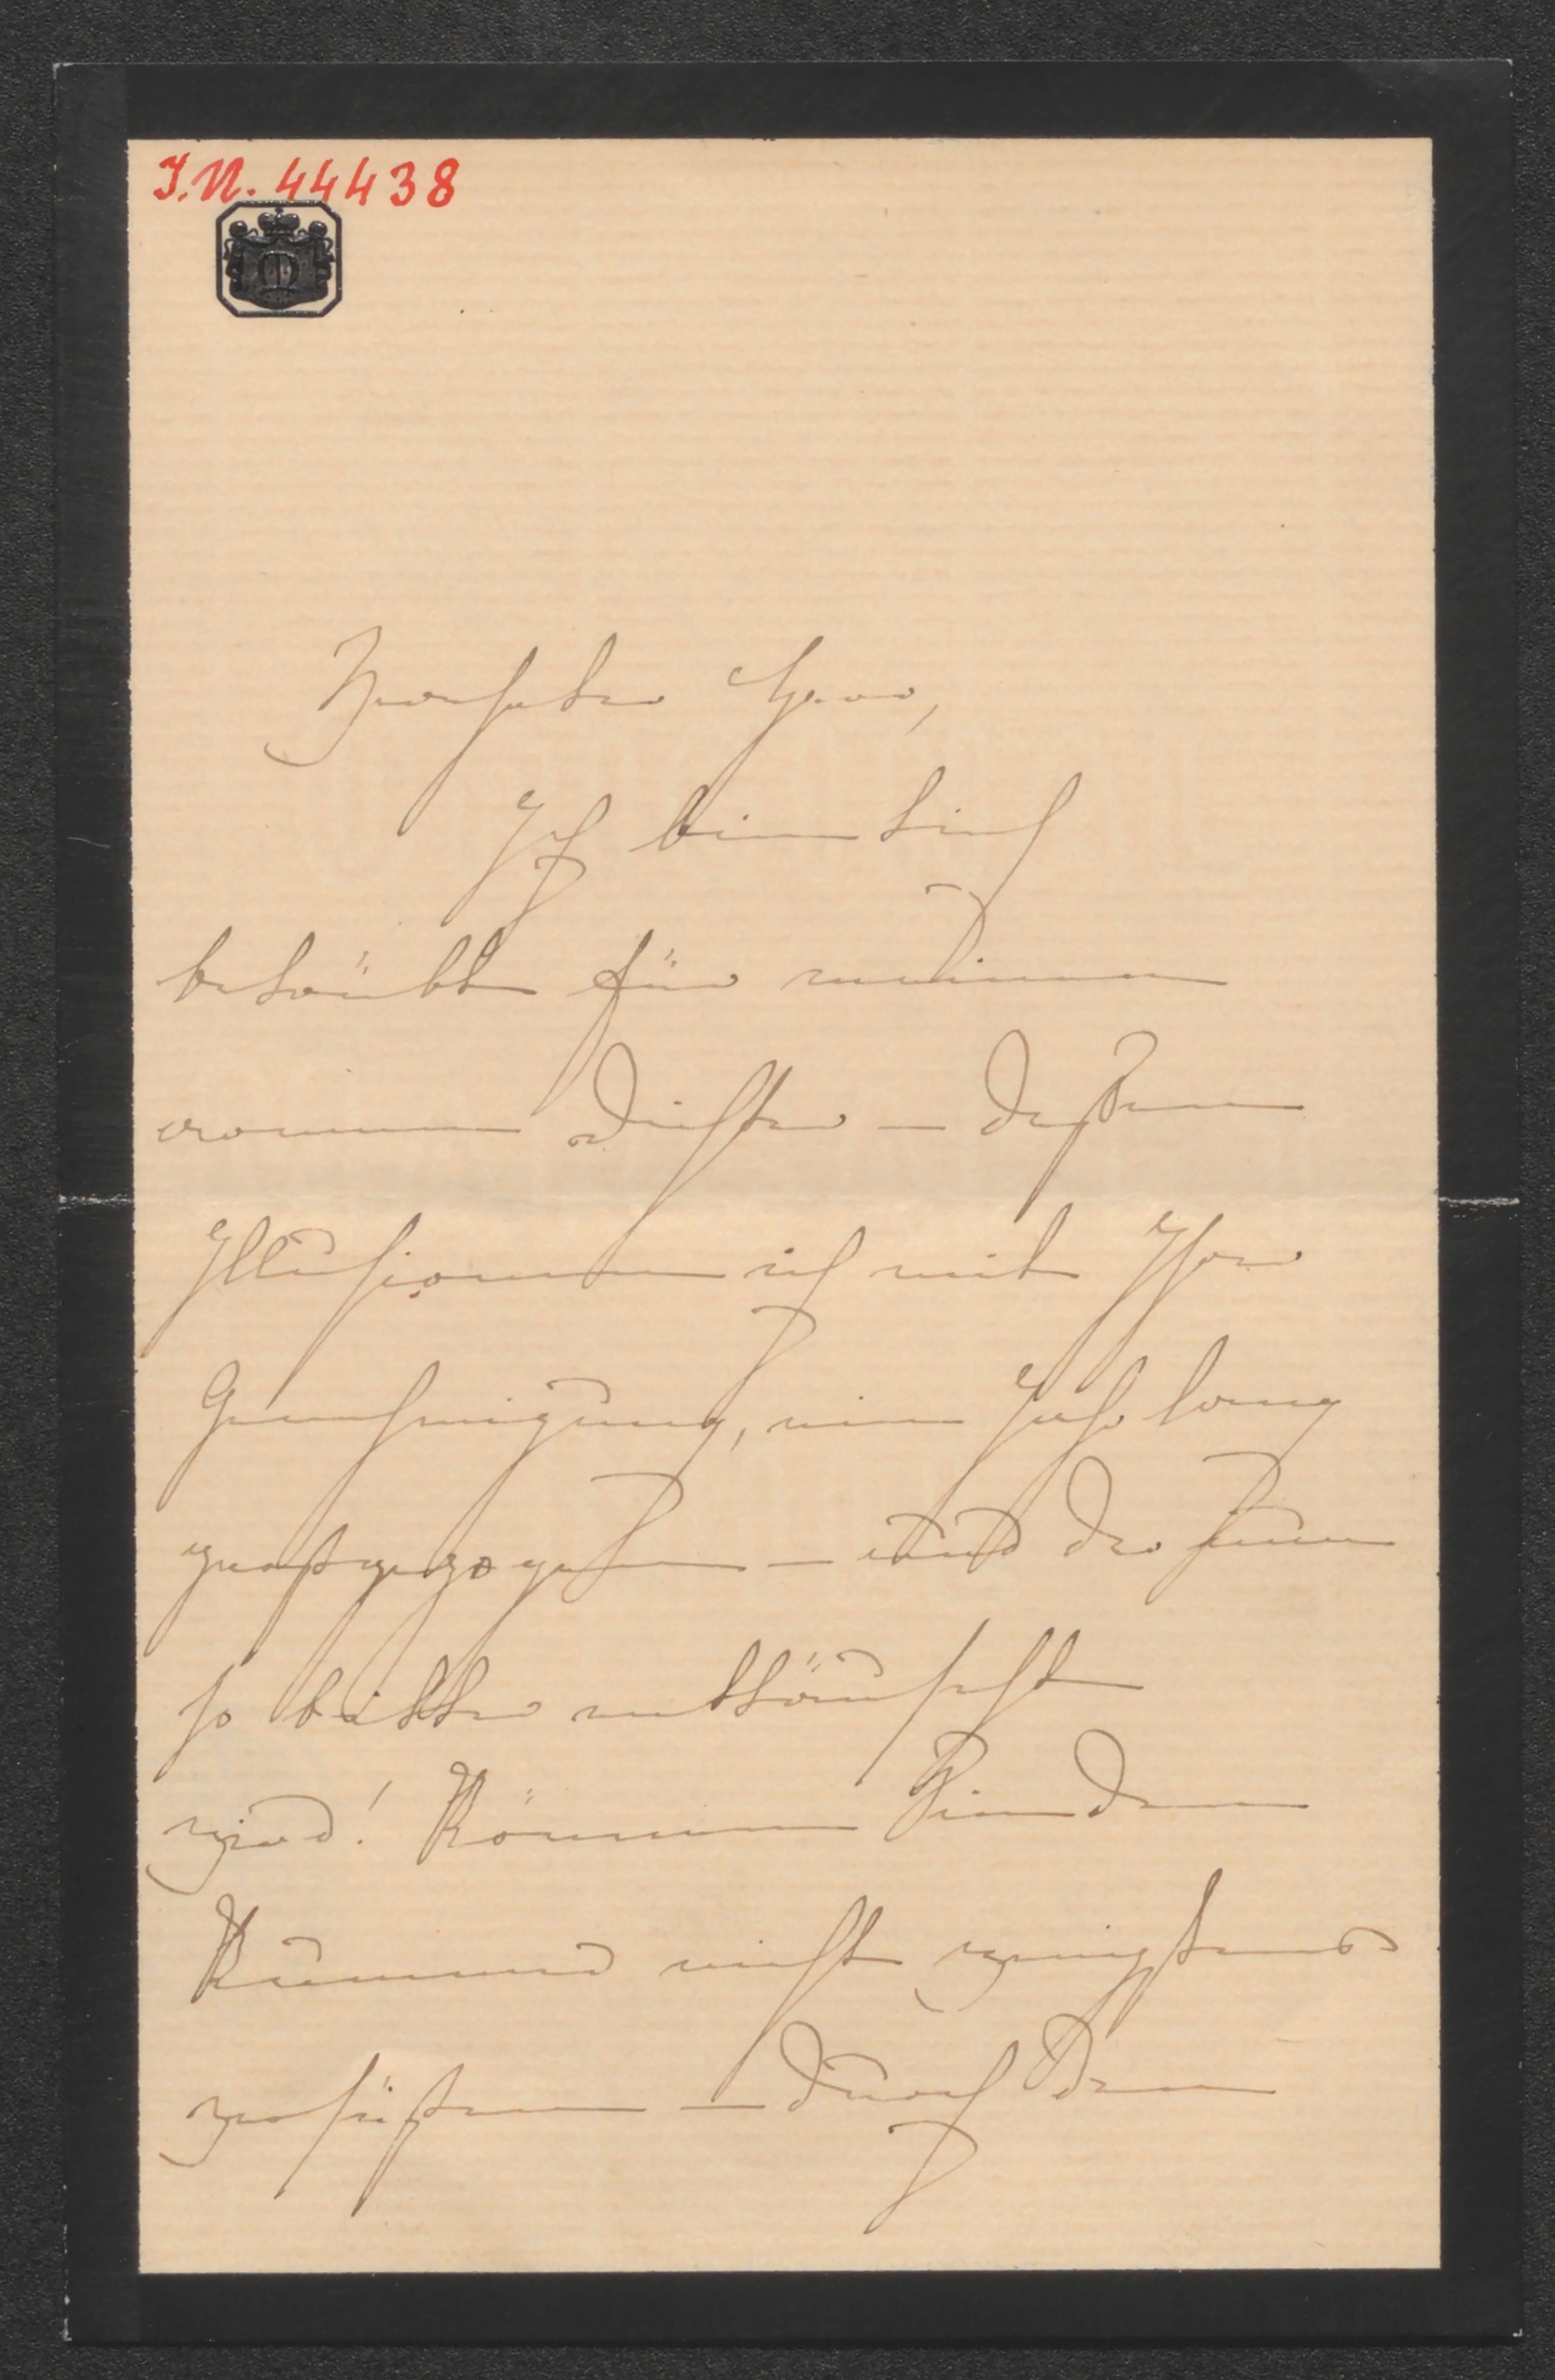 I.N. 44438
Verehrter Herr,
Ich bin tief
betrübt für meinen
armen Dichter – deßen
Illusionen ich mit Ihrer
Genehmigung, ein Jahr lang
großgezogen – und der nun
so bitter enttäuscht
wird! Können Sie den
Kummer nicht wenigstens
versüßen – durch den